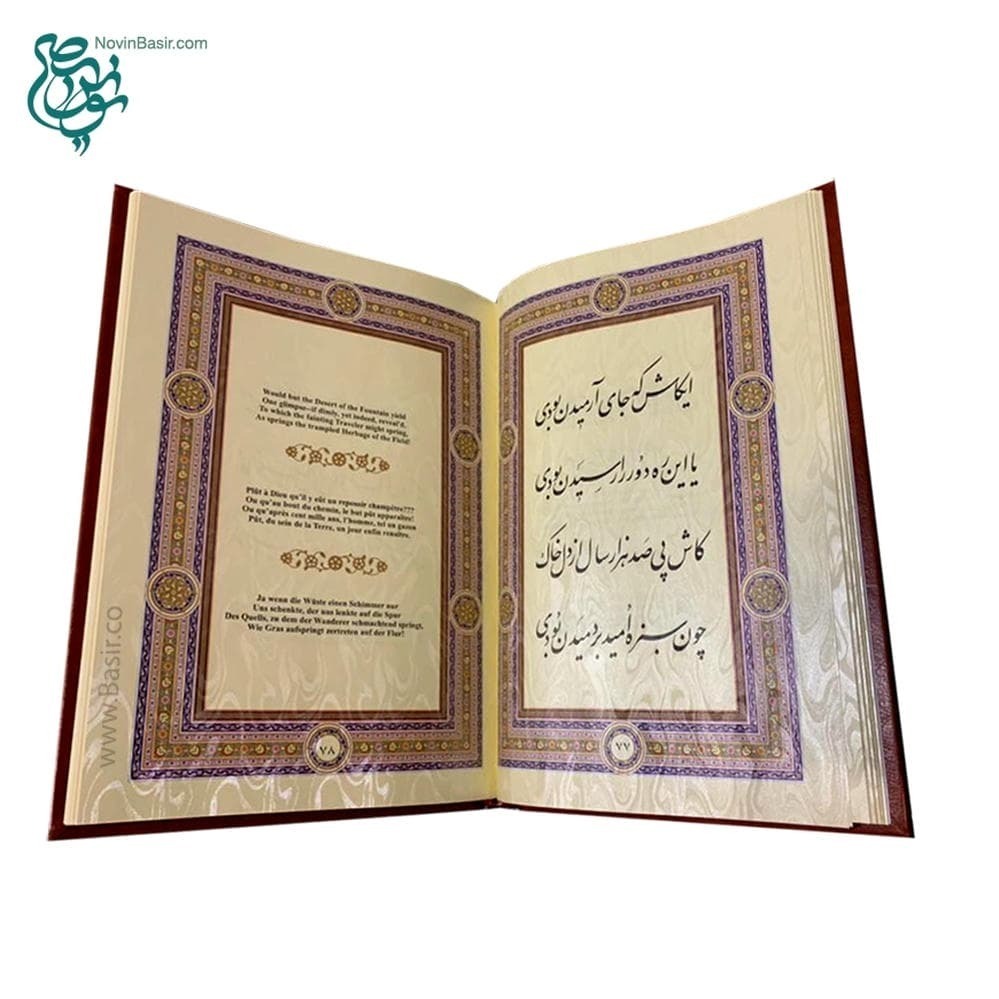 NovinBasir.com
ایکاش که جای آرمیدن بودی
یا این ره دور را رسیدن بودی
کاش پی صد هزار سال از دل خاک
چون سبزه امید بر دمیدن بودی
۷۷
Would but the Desert of the Fountain yield
One glimpse--if dimly, yet indeed, reveal'd,
To which the fainting Traveler might spring,
As springs the trampled Herbage of the Field!
Plût à Dieu qu'il y eût un reposoir champêtre???
Ou qu'au bout du chemin, le but pût apparaître!
Ou qu'après cent mille ans, l'homme, tel un gazon
Pût, du sein de la Terre, un jour enfin renaître.
Ja wenn die Wüste einen Schimmer nur
Uns schenkte, der uns lenkte auf die Spur
Des Quells, zu dem der Wanderer schmachtend springt,
Wie Gras aufspringt zertreten auf der Flur!
۷۸
www.Basir.co